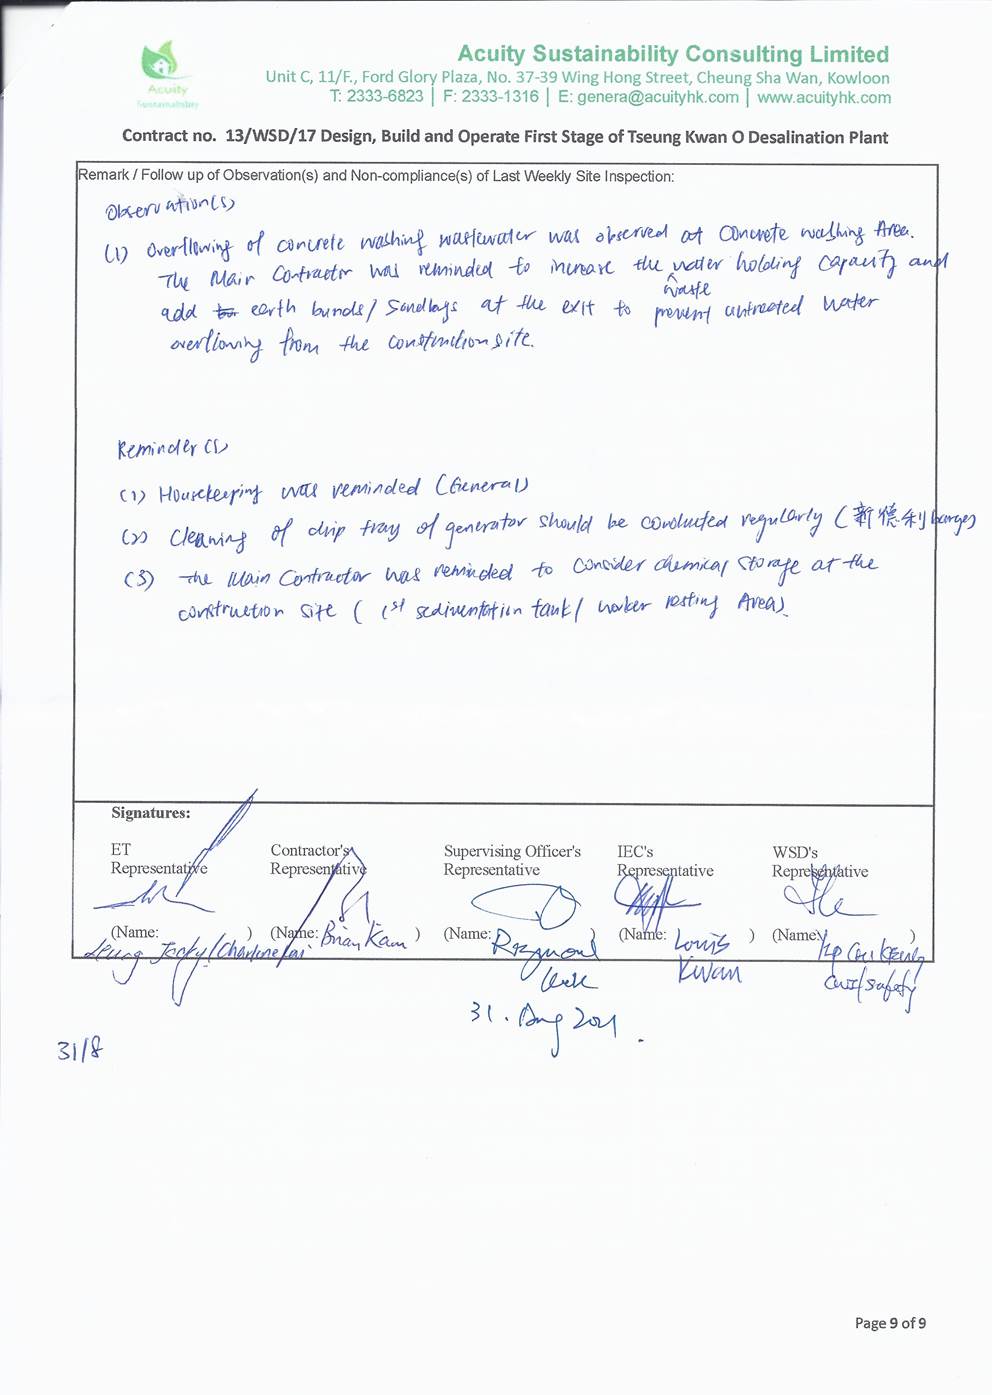 Acuity Sustainability Consulting Limited
Unit C, 11/F., Ford Glory Plaza, No. 37-39 Wing Hong Street, Cheung Sha Wan, Kowloon
T: 2333-6823 | F: 2333-1316 | E: genera@acuityhk.com | www.acuityhk.com
Acuity
Sustainability
Contract no. 13/WSD/17 Design, Build and Operate First Stage of Tseung Kwan O Desalination Plant
Remark / Follow up of Observation(s) and Non-compliance(s) of Last Weekly Site Inspection:
Observation(s)
(1) Overflowing of concrete washing wastewater was observed at Concrete washing Area.
The Main Contractor was reminded to increase the water holding capacity and
waste
add earth bunds/ Sandbags at the exit to prevent untreated water
overflowing from the construction site.
Reminder(s)
(1) Housekeeping was reminded (General)
(2) Cleaning of drip tray of generator should be conducted regularly (新德利 barge)
(3) The Main Contractor was reminded to consider chemical storage at the
construction site ( 1st sedimentation tank/ worker resting Area).
Signatures:
ET Representative
Contractor's Representative
Supervising Officer's Representative
IEC's Representative
WSD's Representative
(Name: Leung Jacky/Charlene Lai)
(Name: Brian Kam)
(Name: Raymond)
(Name: Louis Kwan)
(Name: Yip)
safety
31. Aug 2021.
31/8
Page 9 of 9